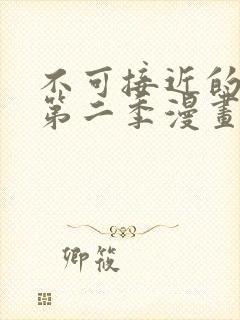 不可接近的
第二季漫畫
卿筱